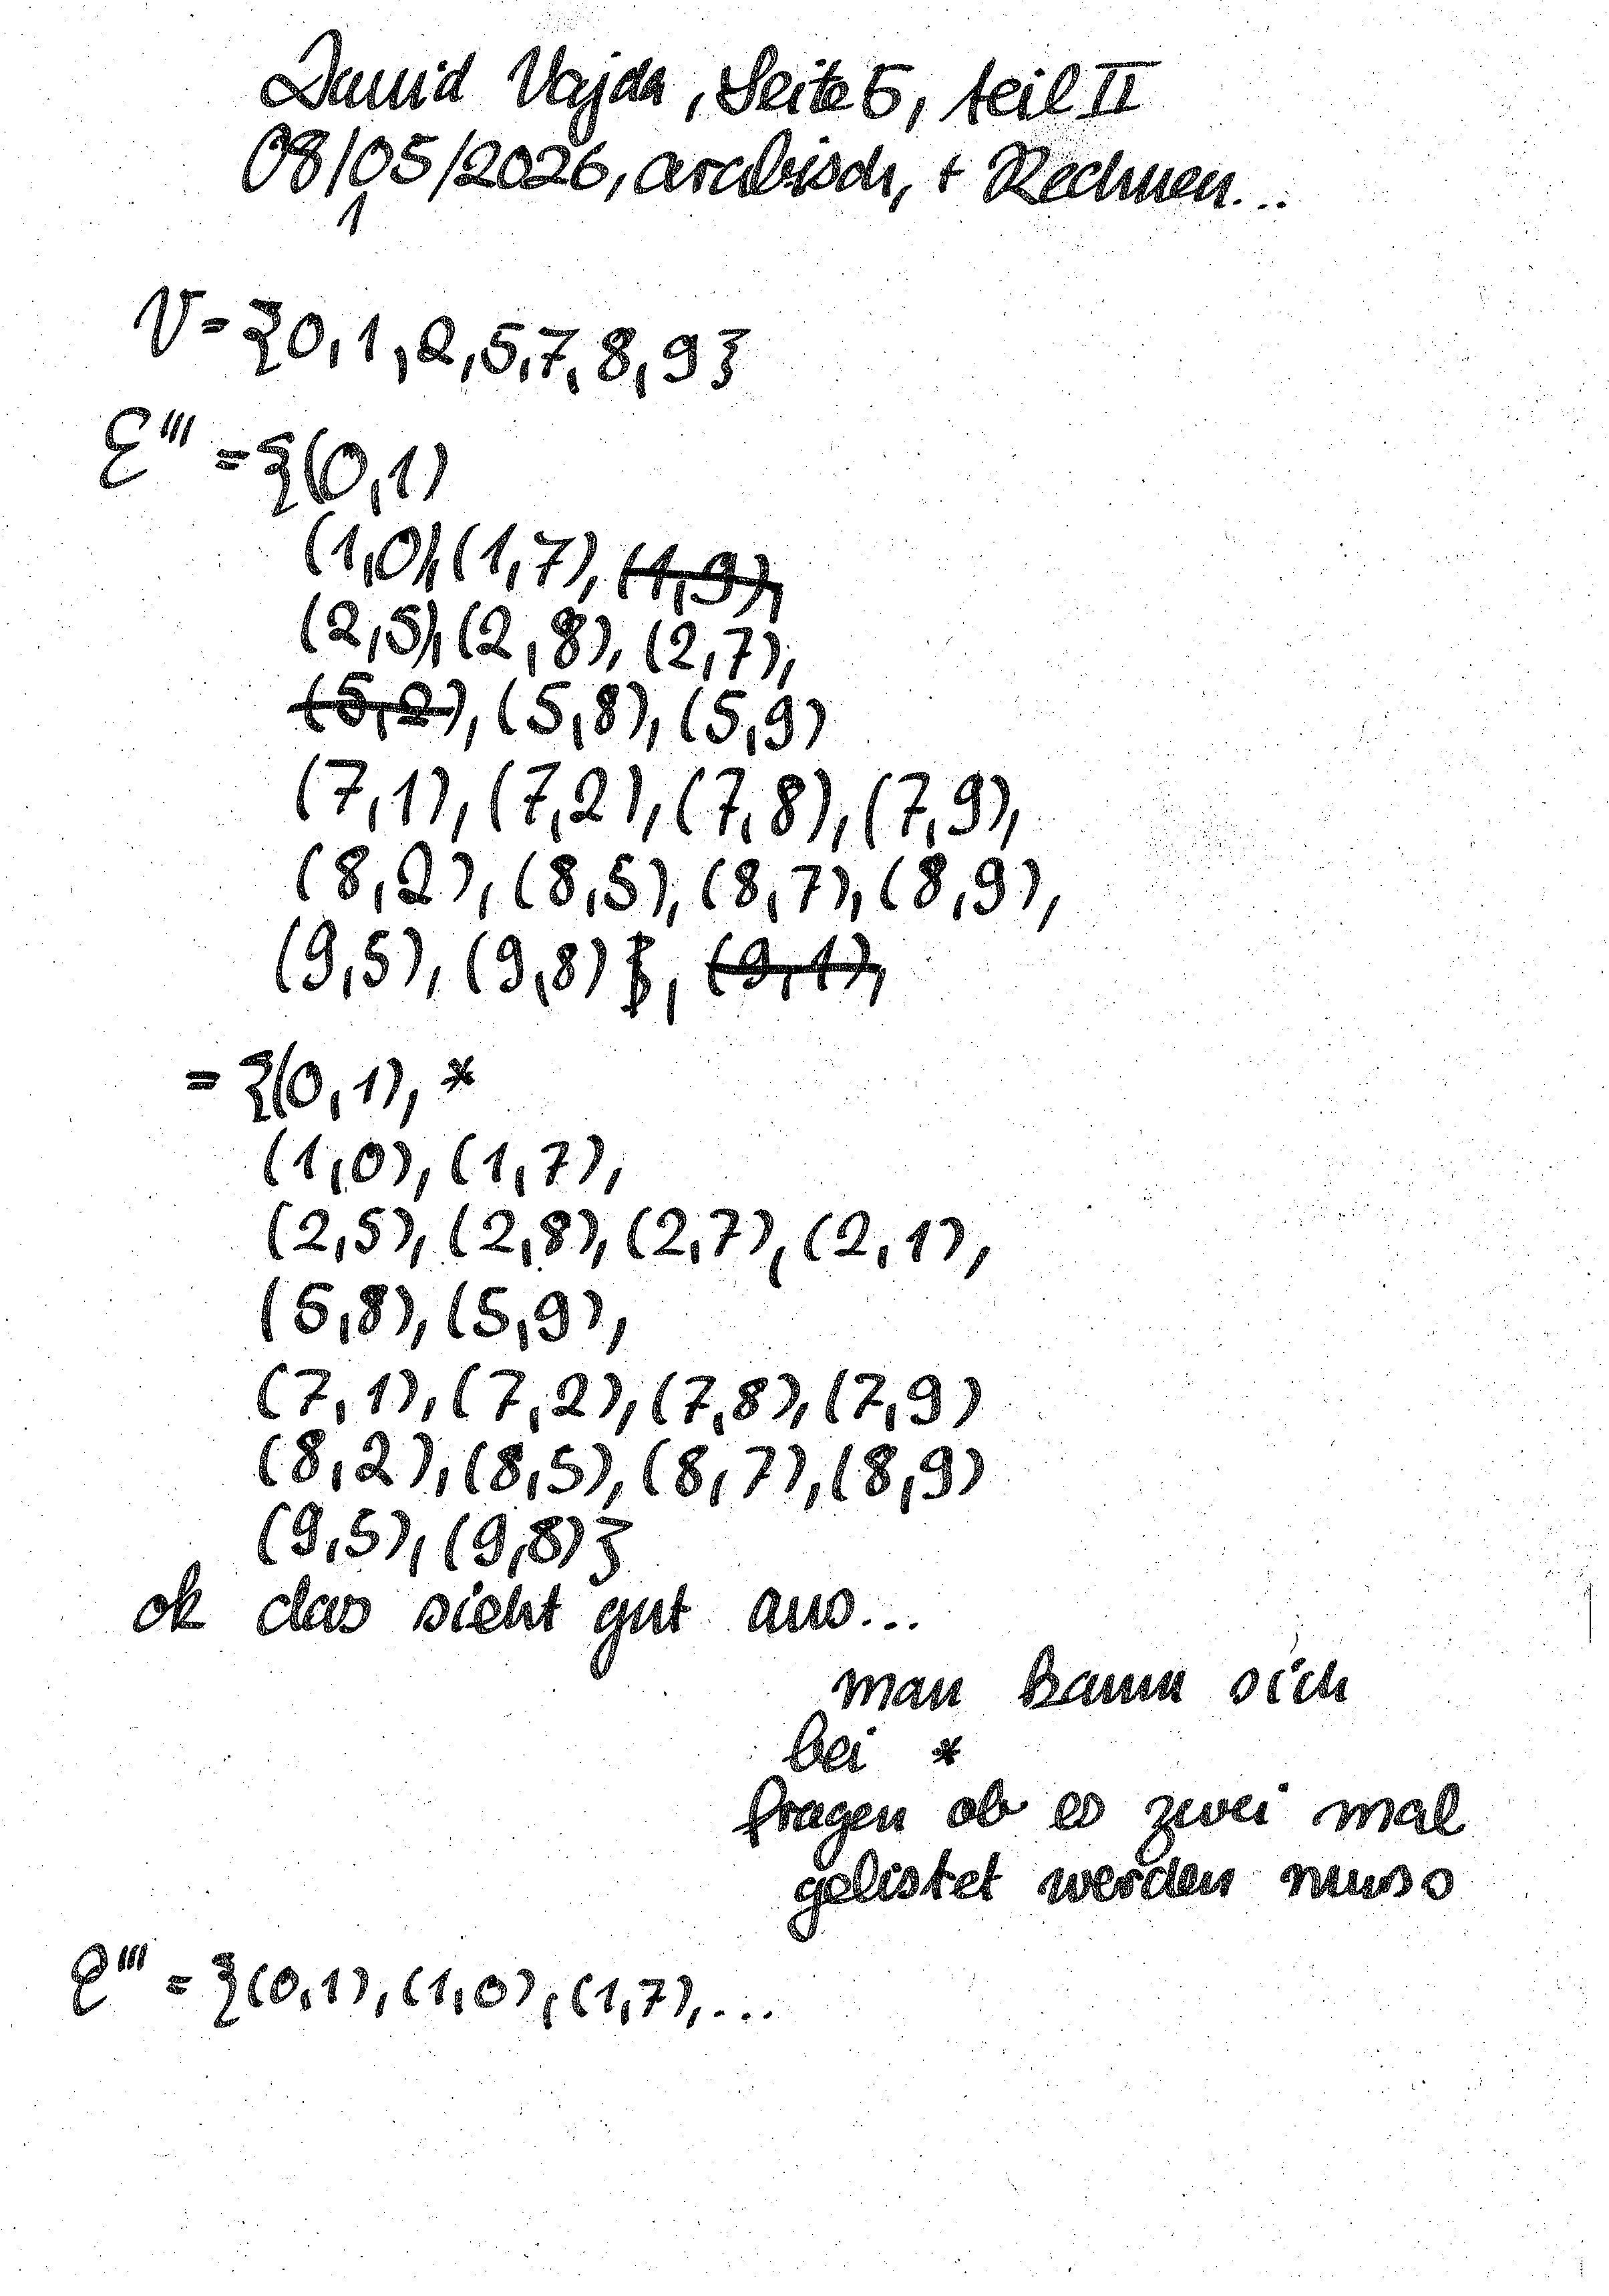 David Vajda, Seite 5, teil II
08/05/2026, arabisch, + Rechnen...
1
V = {0,1,2,5,7,8,9}
E''' = {(0,1)
(1,0),(1,7), (1,9),
(2,5),(2,8), (2,7),
(5,2), (5,8), (5,9)
(7,1), (7,2), (7,8), (7,9),
(8,2), (8,5), (8,7), (8,9),
(9,5), (9,8) }, (9,1),
= {(0,1), *
(1,0), (1,7),
(2,5), (2,8), (2,7), (2,1),
(5,8), (5,9),
(7,1), (7,2), (7,8), (7,9)
(8,2), (8,5), (8,7), (8,9)
(9,5), (9,8)}
ok das sieht gut aus...
man kann sich
bei *
fragen ob es zwei mal
gelistet werden muss
E''' = {(0,1), (1,0), (1,7), ...